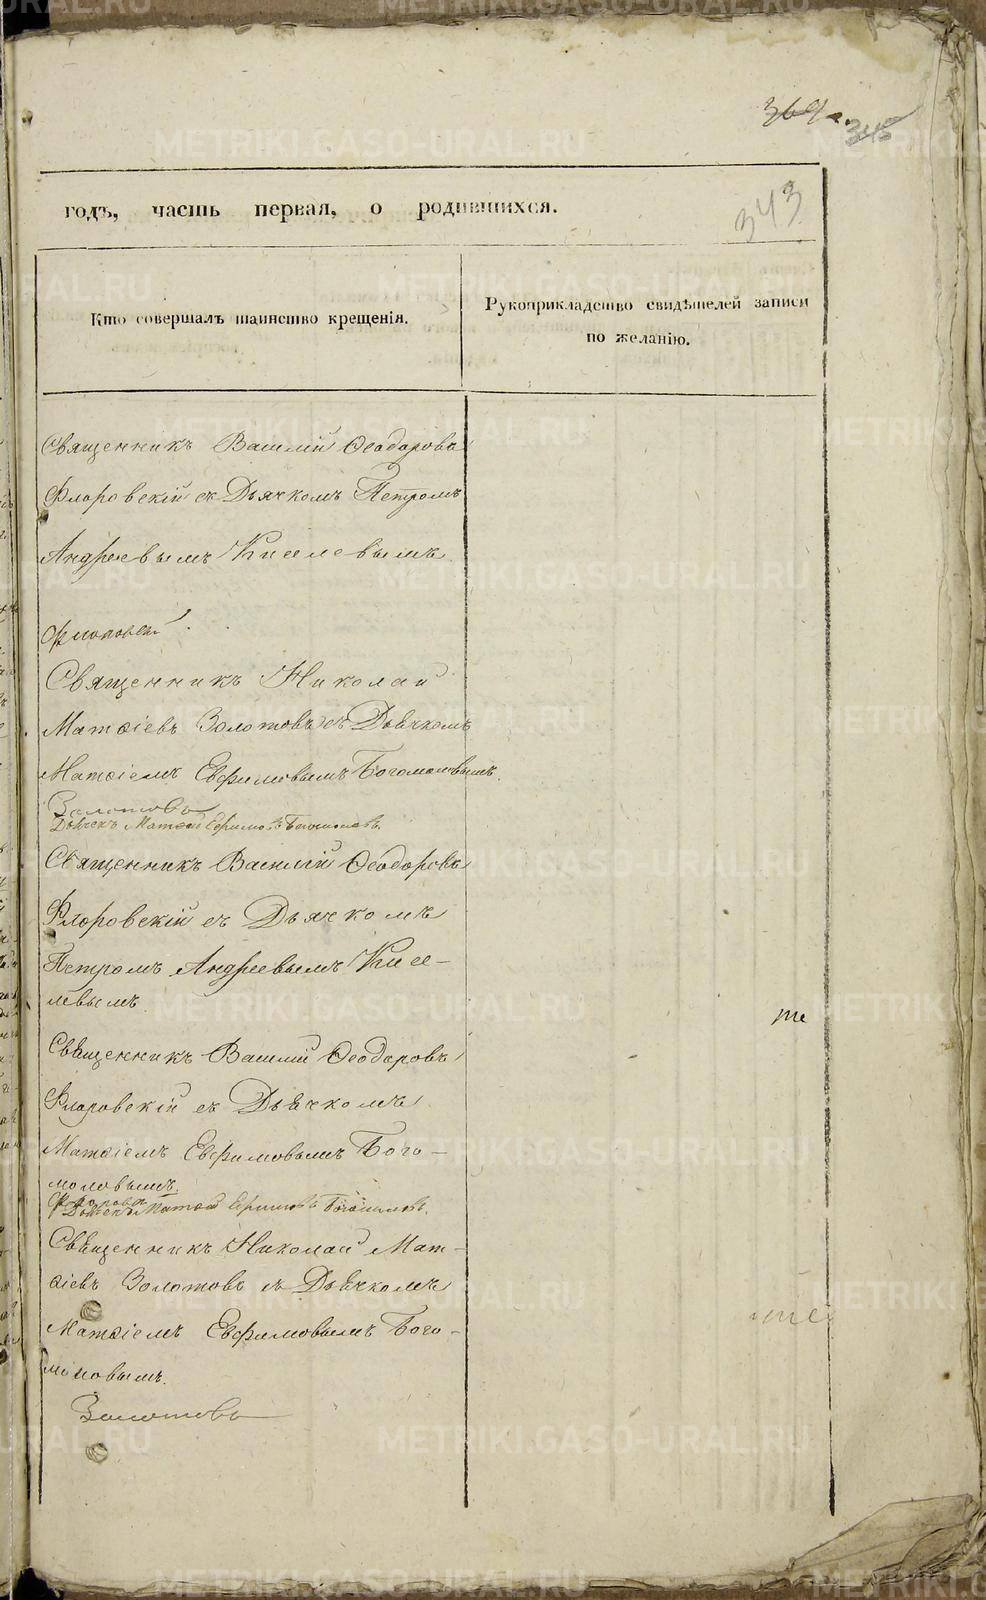 369
345
343
годъ, часть первая, о родившихся.
Кто совершалъ таинство крещенія.
Рукоприкладство свидѣтелей записи
по желанію.
Священникъ Василій Ѳеодоровъ
Флоровскій съ Дьячкомъ Петромъ
Андреевымъ Киселевымъ
Священникъ Николай
Матѳіевъ Золотовъ съ Дьячкомъ
Матѳіемъ Евфимовымъ Богомоловымъ.
Золотовъ
Дьячекъ Матѳей Ефимовъ Богомоловъ.
Священникъ Василій Ѳеодоровъ
Флоровскій съ Дьячкомъ
Петромъ Андреевымъ Кисе-
левымъ
Священникъ Василій Ѳеодоровъ
Флоровскій съ Дьячкомъ
Матѳіемъ Евфимовымъ Бого-
моловымъ.
Дьячекъ Матѳей Ефимовъ Богомоловъ.
Священникъ Николай Мат-
ѳіевъ Золотовъ съ Дьячкомъ
Матѳіемъ Евфимовымъ Бого-
моловымъ.
Золотовъ
METRIKI.GASO-URAL.RU